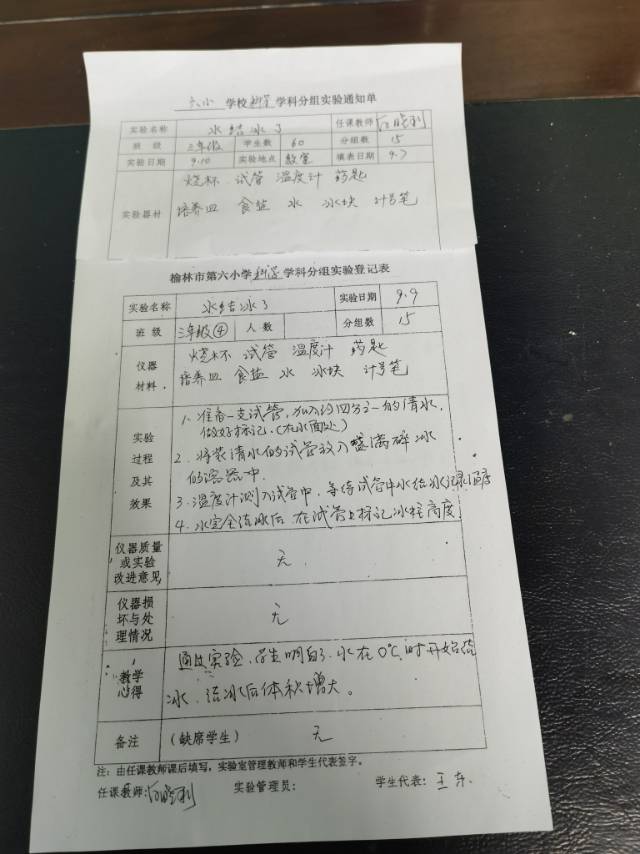 六小 学校 科学 学科分组实验通知单
实验名称 水结冰了 任课教师
班 级 三年级 学生数 60 分组数 15
实验日期 9.10 实验地点 教室 填表日期 9.7
实验器材 烧杯 试管 温度计 药匙
培养皿 食盐 水 冰块 计号笔
榆林市第六小学 科学 学科分组实验登记表
实验名称 水结冰了 实验日期 9.9
班 级 三年级④ 人 数 分组数 15
仪器材料 烧杯 试管 温度计 药匙
培养皿 食盐 水 冰块 计号笔
实验过程及其效果 1、准备一支试管,加入约四分之一的清水,
做好标记。(在水面处)
2、将装清水的试管放入盛满碎冰
的容器中.
3、温度计测入试管中,等待试管中水结冰记录温度
4、水完全结冰后 在试管上标记冰柱高度.
仪器质量或实验改进意见 无
仪器损坏与处理情况 无
教学心得 通过实验,学生明白了,水在0℃时开始结
冰、结冰后体积增大。
备注 (缺席学生) 无
注:由任课教师课后填写,实验室管理教师和学生代表签字。
任课教师: 实验管理员: 学生代表:王东